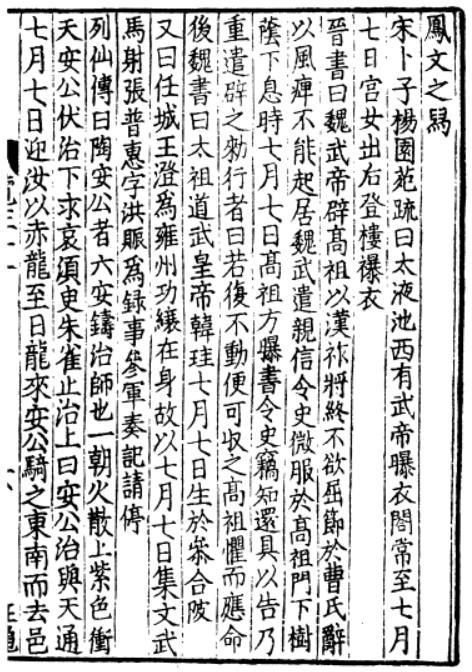 鳳文之舄
宋卜子楊園苑疏曰太液池西有武帝曝衣閣常至七月
七日宫女出后登樓襮衣
晉書曰魏武帝辟髙祖以漢祚將終不欲屈節於曹氏辭
以風痺不能起居魏武遣親信令史微服於髙祖門下樹
蔭下息時七月七日髙祖方曝書令史竊知還具以告乃
重遣辟之勑行者曰若復不動便可収之髙祖懼而應命
後魏書曰太祖道武皇帝韓珪七月七日生於叅合陂
又曰任城王澄爲雍州功縗在身故以七月七日集文武
馬射張普惠字洪賑爲録事叅軍奏記請停
列仙傳曰陶安公者六安鑄治師也一朝火散上紫色衝
天安公伏治下求哀湏史朱雀止治上曰安公治與天通
七月七日迎汝以赤龍至日龍來安公騎之東南而去邑